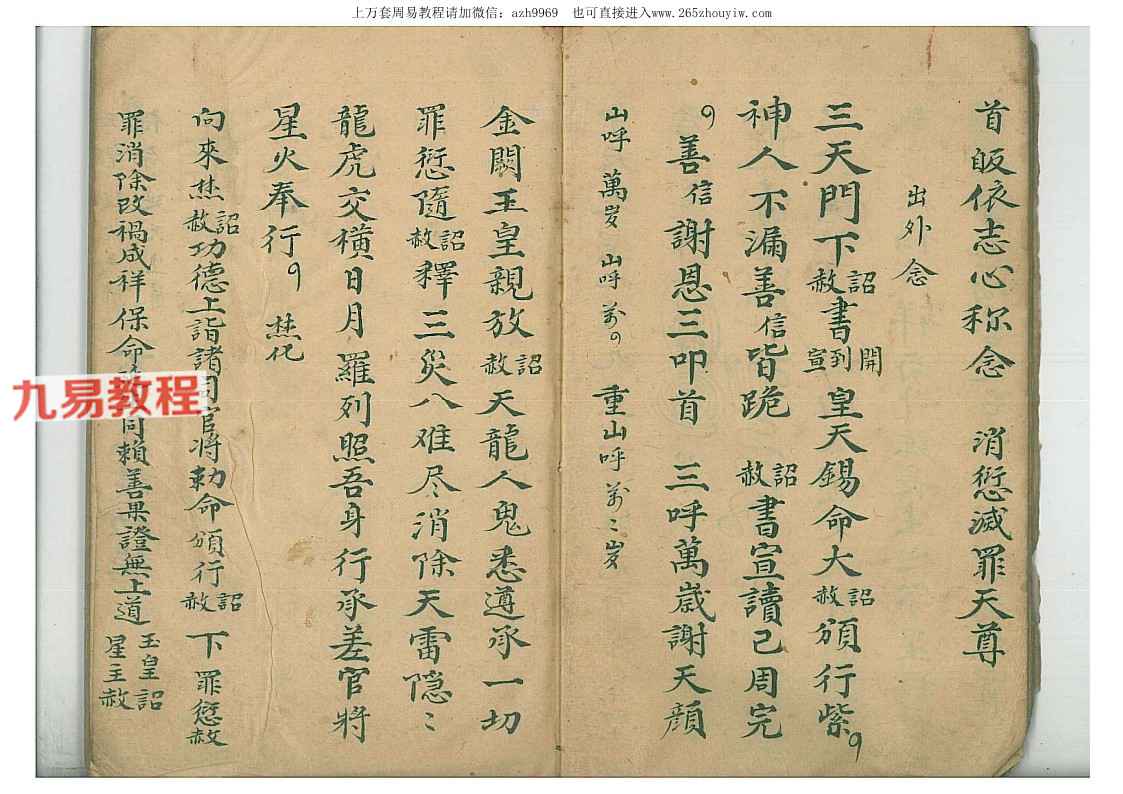 上万套周易教程请加微信：azh9969　也可直接进入www.265zhouyiw.com
首皈依志心称念　消愆滅罪天尊
出外念
三天門下詔赦書開到宣皇天錫命大詔赦頒行紫
神人不漏善信皆跪　詔赦書宣讀已周完
善信謝恩三叩首　三呼萬歲謝天顏
山呼　萬岁　山呼　万　重山呼　万〻岁
金闕玉皇親放詔赦天龍人鬼悉遵承一切
罪愆隨詔赦釋三災八难尽消除天雷隐〻
龍虎交横日月羅列照吾身行承差官將
星火奉行　焚化
向來焚詔赦功德上詣諸司官将勅命頒行詔赦下罪愆赦
罪消除改禍成祥保命　同賴善果證無上道玉皇詔星主赦
九易教程